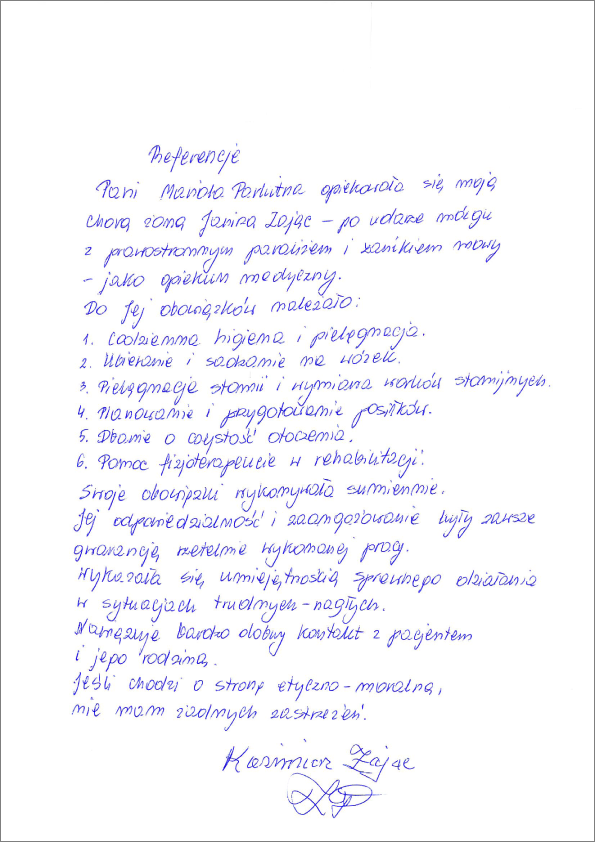 Referencje
Pani Mariola Parlutna opiekowała się moją
chorą żoną Janiną Zając – po udarze mózgu
z prawostronnym paraliżem i zanikiem mowy
– jako opiekun medyczny.
Do Jej obowiązków należało:
1. Codzienna higiena i pielęgnacja.
2. Ubieranie i sadzanie na wózek.
3. Pielęgnacja stomii i wymiana worków stomijnych.
4. Planowanie i przygotowanie posiłków.
5. Dbanie o czystość otoczenia.
6. Pomoc fizjoterapeucie w rehabilitacji.
Swoje obowiązki wykonywała sumiennie.
Jej odpowiedzialność i zaangażowanie były zawsze
gwarancją rzetelnie wykonanej pracy.
Wykazała się umiejętnością sprawnego działania
w sytuacjach trudnych – nagłych.
Nawiązuje bardzo dobry kontakt z pacjentem
i jego rodziną.
Jeśli chodzi o stronę etyczno – moralną,
nie mam żadnych zastrzeżeń.
Kazimierz Zając